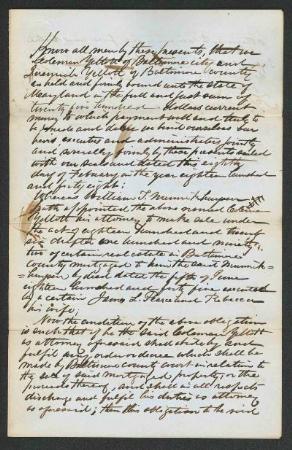 Know all men by these presents, that we
Coleman Yellott of Baltimore city and
Jeremiah Yellott of Baltimore county,
as held and firmly bound unto the State of
Maryland in the full and just sum of
twenty five hundred dollars current
money to which payment well and truly to
be made and done we bind ourselves our
heirs executors and administrators jointly
and severally firmly by these presents sealed
with our seals and dated this eighth
day of February in the year eighteen hundred
and forty eight:
Whereas William
hath appointed the above named Coleman
Yellott his attorney to make sale under
the act of eighteen hundred and twenty
six chapter one hundred and ninety
two of certain real estate in Baltimore
county mortgaged to him the said
by deed dated the fifth of June
eighteen hundred and forty five executed
by a certain James L. Pearce and Rebecca
his wife:
Now the condition of the above obligation
is such that if he the said Coleman Yellott
as attorney aforesaid shall abide by and
fulfil any order or decree which shall be
made by Baltimore county court in relation to
the sale of said mortgaged property, or the
proceeds thereof, and shall in all respects
discharge and fulfil his duties as attorney
as aforesaid; then this obligation to be void